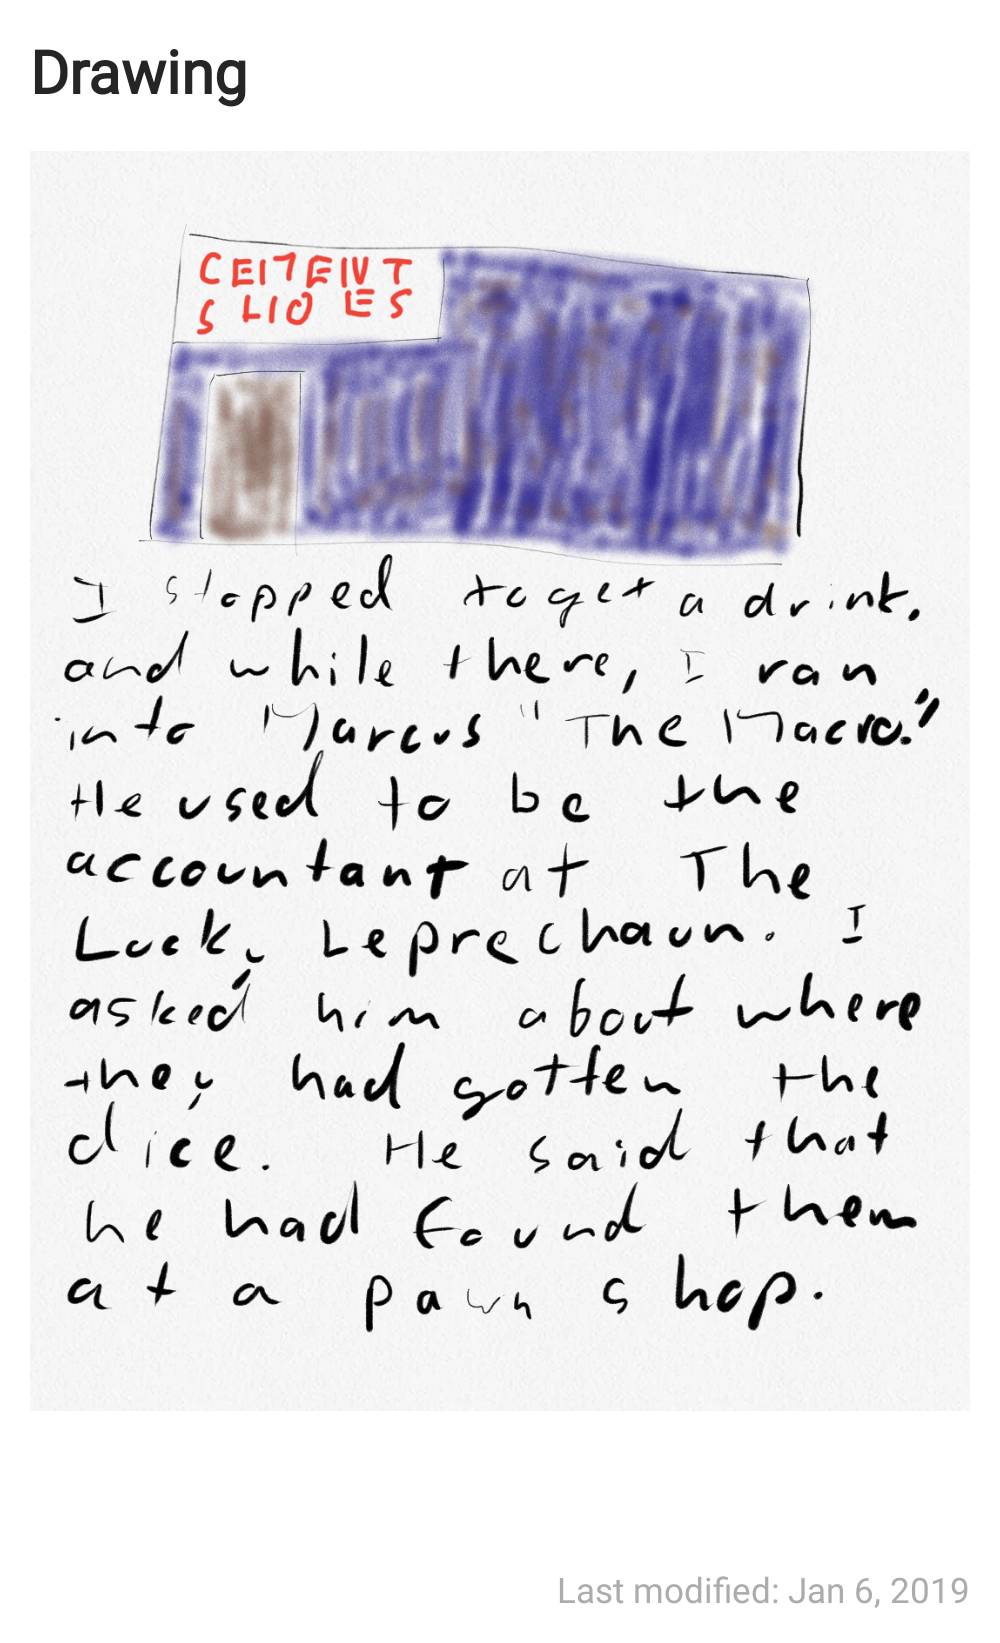 Drawing
CEMENT
SHOES
I stopped to get a drink,
and while there, I ran
into Marcus "The Macro."
He used to be the
accountant at The
Lucky Leprechaun. I
asked him about where
they had gotten the
dice. He said that
he had found them
at a pawn shop.
Last modified: Jan 6, 2019